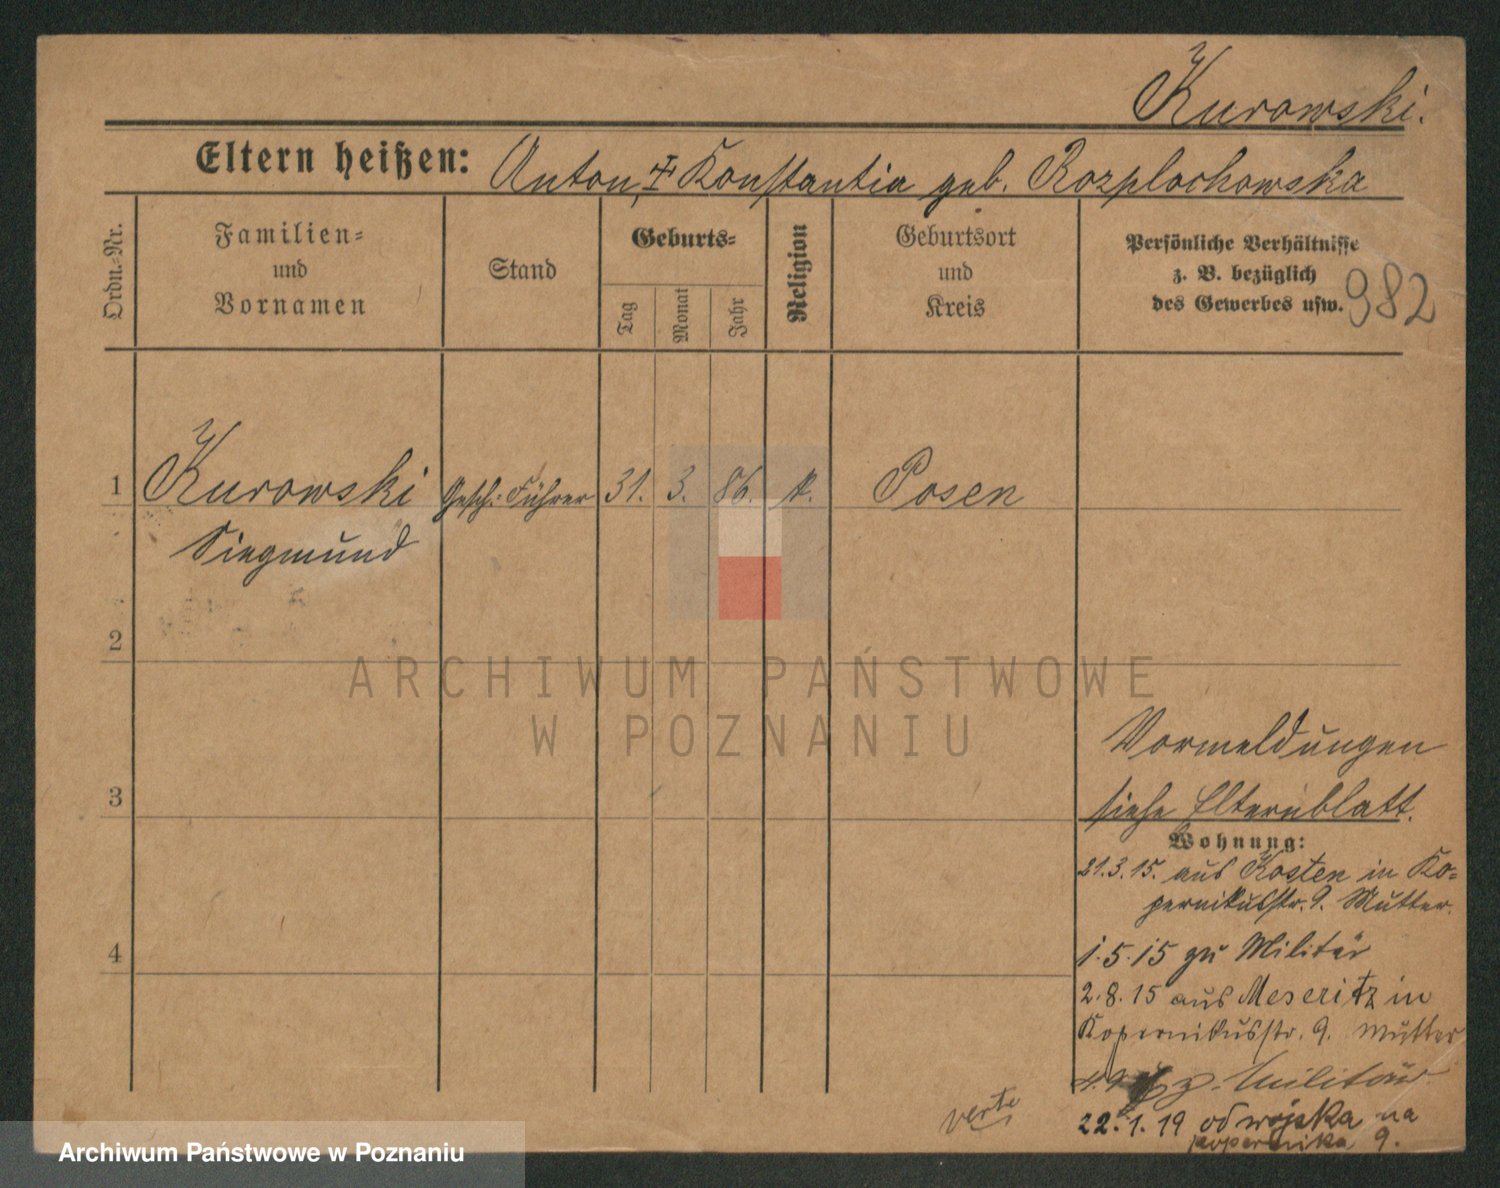 Kurowski.
Eltern heißen: Anton, ✝ Konstantia geb. Rozplochowska
Ordn.-Nr.
Familien-
und
Vornamen
Stand
Geburts-
Tag
Monat
Jahr
Religion
Geburtsort
und
Kreis
Persönliche Verhältnisse
z. B. bezüglich
des Gewerbes usw.
982
1 Kurowski Gesch. Führer 31. 3. 86. k. Posen
Siegmund
2
3
4
Vormeldungen
siehe Elternblatt.
Wohnung:
21.3.15. aus Kosten in Ko-
pernikusstr. 9. Mutter.
1.5.15 zu Militär
2.8.15 aus Meseritz in
Kopernikusstr. 9. Mutter
z. Militär
22.1.19 od wojska na
Kopernika 9.
verte
ARCHIWUM PAŃSTWOWE
W POZNANIU
Archiwum Państwowe w Poznaniu